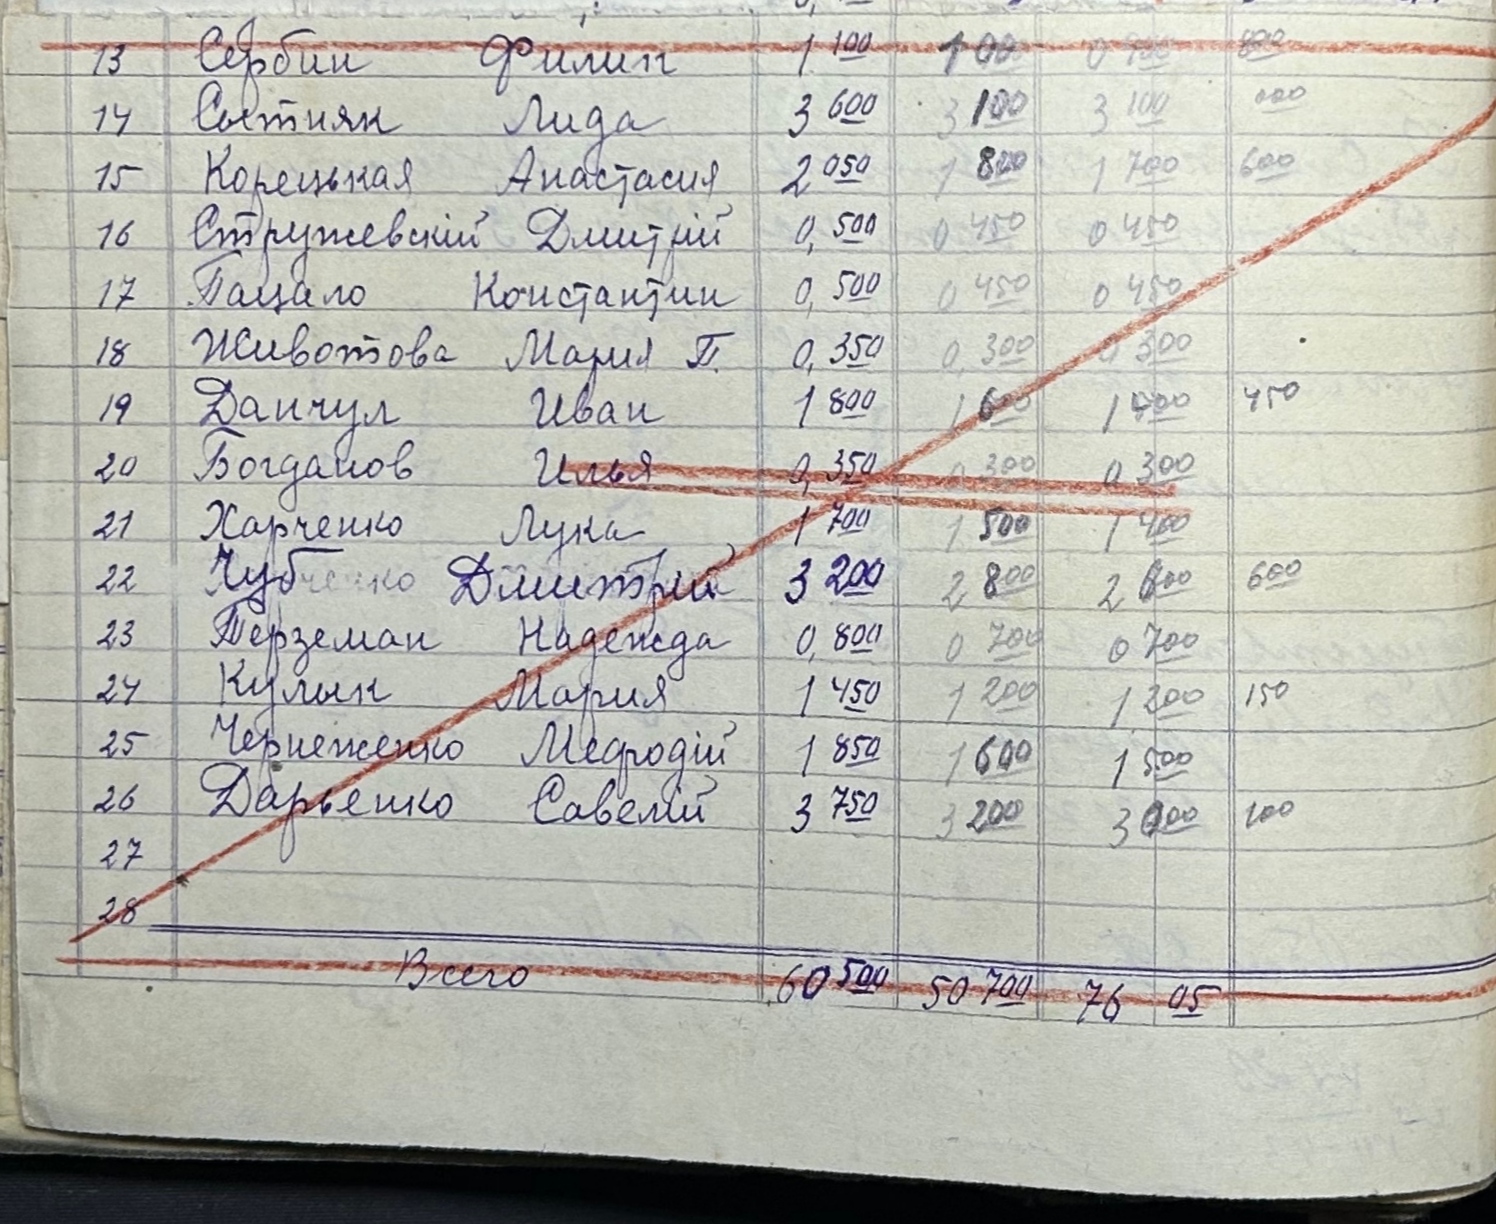 13 Сербин Филип 1 100 1 00 0 900 800
14 Сытняк Лида 3 600 3 100 3 100
15 Корецькая Анастасия 2 050 1 800 1 700 600
16 Стружевскій Дмитрій 0,500 0 450 0 450
17 Пацало Константин 0,500 0 450 0 450
18 Животова Мария П. 0,350 0,300 0 300
19 Данчул Иван 1 800 1 600 1 400 450
20 Богданов Илья 0,350 0 300 0 300
21 Харченко Лука 1 700 1 500 1 400
22 Чубченко Дмитрій 3 200 2 800 2 600 600
23 Перземан Надежда 0,800 0 700 0 700
24 Кулык Мария 1 450 1 200 1 200 150
25 Чернеженко Мефодій 1 850 1 600 1 500
26 Дарьенко Савелій 3 750 3 200 3 000 100
27
28
Всего 60 500 50 700 76 05